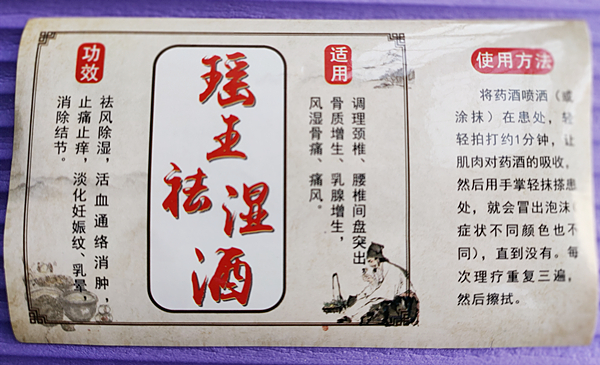 功效
祛风除湿，活血通络消肿，
止痛止痒，淡化妊娠纹、乳晕，
消除结节。
瑶王祛湿酒
适用
调理颈椎、腰椎间盘突出
骨质增生、乳腺增生，
风湿骨痛、痛风。
使用方法
将药酒喷洒（或
涂抹）在患处，轻
轻拍打约1分钟，让
肌肉对药酒的吸收，
然后用手掌轻抹搽患
处，就会冒出泡沫（
症状不同颜色也不
同），直到没有。每
次理疗重复三遍，
然后擦拭。